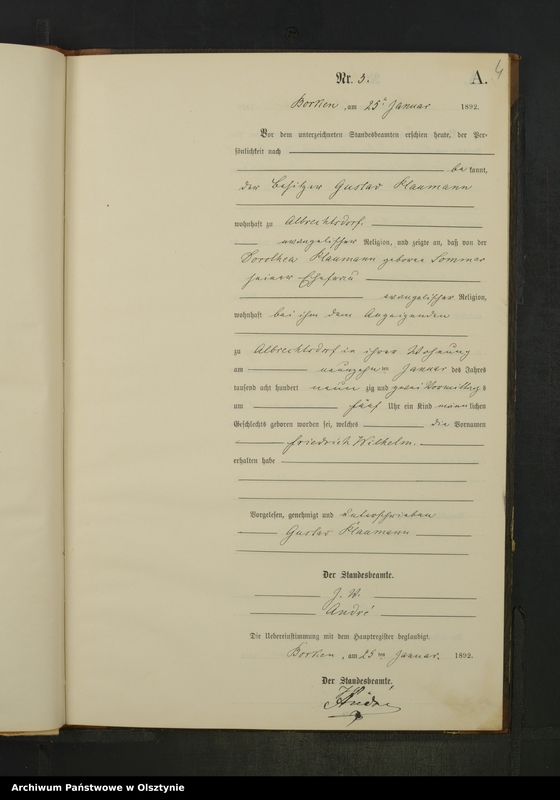 4
Nr. 5. A.
Borken, am 25ᵗ Januar 1892.
Vor dem unterzeichneten Standesbeamten erschien heute, der Per-
sönlichkeit nach
be kannt,
der Besitzer Gustav Klaumann
wohnhaft zu Albrechtsdorf.
evangelischer Religion, und zeigte an, daß von der
Dorothea Klaumann geborne Sommer
seiner Ehefrau
evangelischer Religion,
wohnhaft bei ihm dem Anzeigenden
zu Albrechtsdorf in ihrer Wohnung
am neunzehnten Januar des Jahres
tausend acht hundert neun zig und zwei Vormittag s
um fünf Uhr ein Kind männ lichen
Geschlechts geboren worden sei, welches die Vornamen
Friedrich Wilhelm.
erhalten habe
Vorgelesen, genehmigt und unterschrieben
Gustav Klaumann
Der Standesbeamte.
J. V.
André
Die Uebereinstimmung mit dem Hauptregister beglaubigt
Borken, am 25ten Januar. 1892.
Der Standesbeamte.
André
Archiwum Państwowe w Olsztynie